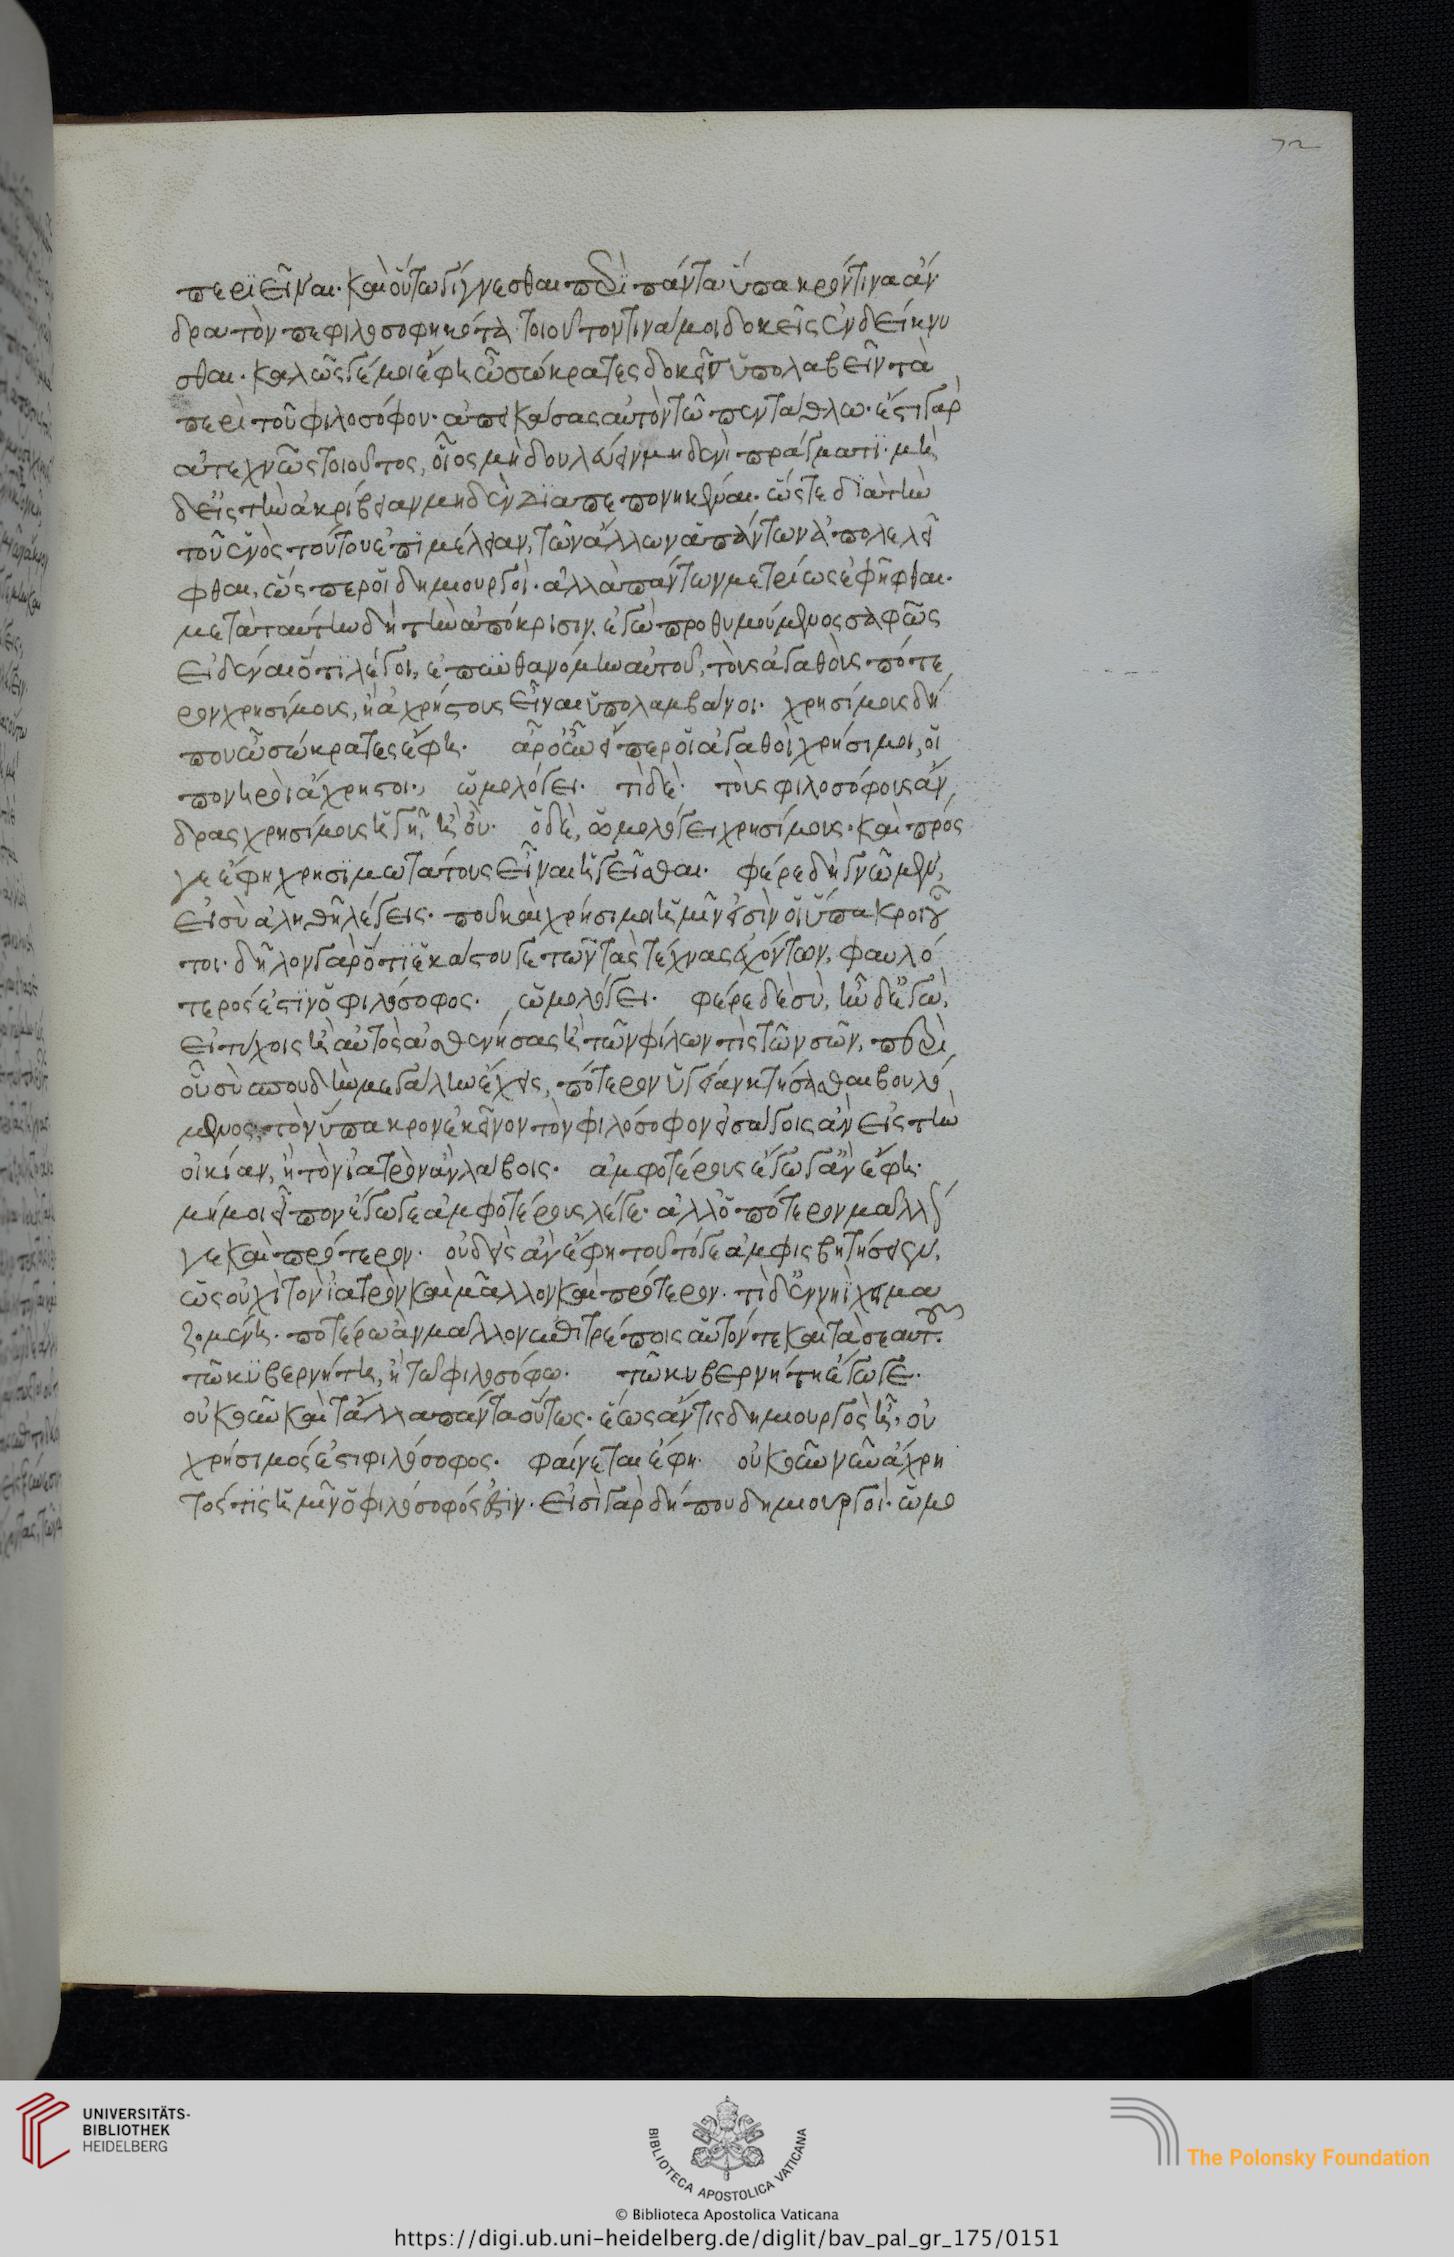 72
περὶ εἶναι. καὶ οὕτω γίγνεσθαι περὶ πάντα ὕπακρόν τινα ἄν
δρα τὸν πεφιλοσοφηκότα. τοιοῦτόν τινά μοι δοκεῖς ἐνδείκνυ
σθαι. καλῶς γέ μοι ἔφη ὦ σώκρατες δοκεῖς ὑπολαβεῖν τὰ
περὶ τοῦ φιλοσόφου. ἀπεικάσας αὐτὸν τῶ πεντάθλω. ἔστι γὰρ
ἀτεχνῶς τοιοῦτος, οἷος μὴ δουλεύειν μηδενὶ πράγματι. μη
δ' εἰς τὴν ἀκρίβειαν μηδὲν διαπεπονηκέναι. ὥστε διὰ τὴν
τοῦ ἑνὸς τούτου ἐπιμέλειαν, τῶν ἄλλων ἁπάντων ἀπολελεῖ
φθαι, ὥσπερ οἱ δημιουργοὶ. ἀλλὰ πάντων μετρίως ἐφῆφθαι.
μετὰ ταύτην δὴ τὴν ἀπόκρισιν, ἐγὼ προθυμούμενος σαφῶς
εἰδέναι ὅτι λέγοι, ἐπυνθανόμην αὐτοῦ, τοὺς ἀγαθοὺς πότε
ρον χρησίμους, ἢ ἀχρήστους εἶναι ὑπολαμβάνοι. χρησίμους δή
που ὦ σώκρατες ἔφη. ἆρ' οὖν εἴπερ οἱ ἀγαθοὶ χρήσιμοι, οἱ
πονηροὶ ἄχρηστοι., ὡμολόγει. τί δέ. τοὺς φιλοσόφους ἄν
δρας χρησίμους ἡγῆ, ἢ οὔ. ὁ δὲ, ὡμολόγει χρησίμους. καὶ πρός
γε ἔφη χρησιμωτάτους εἶναι ἡγεῖσθαι. φέρε δὴ γνῶμεν,
εἰ σὺ ἀληθῆ λέγεις. ποῦ καὶ χρήσιμοι ἡμῖν εἰσὶν οἱ ὕπακροι οὗ
τοι. δῆλον γὰρ ὅτι ἑκάστου γε τῶν τὰς τέχνας ἐχόντων, φαυλό
τερός ἐστιν ὁ φιλόσοφος. ὡμολόγει. φέρε δὴ σὺ, ἦν δ' ἐγὼ,
εἰ τύχοις ἢ αὐτὸς ἀσθενήσας ἢ τῶν φίλων τὶς τῶν σῶν, περὶ
οὓς σὺ σπουδὴν μεγάλην ἔχεις, πότερον ὑγείαν κτήσασθαι βουλό
μενος, τὸν ὕπακρον ἐκεῖνον τὸν φιλόσοφον εἰσάγοις ἂν εἰς τὴν
οἰκίαν, ἢ τὸν ἰατρὸν ἂν λάβοις. ἀμφοτέρους ἔγωγ' ἂν ἔφη.
μή μοι εἶπον ἔγωγε ἀμφοτέρους λέγε. ἀλλ' ὁπότερον μᾶλλόν
γε καὶ πρότερον. οὐδεὶς ἂν ἔφη τοῦτό γε ἀμφισβητήσειεν,
ὡς οὐχὶ τὸν ἰατρὸν καὶ μᾶλλον καὶ πρότερον. τί δ' ἐν νηὶ χειμα
ζομένη. ποτέρω ἂν μᾶλλον ἐπιτρέποις αὑτόν τε καὶ τὰ σεαυτοῦ.
τῶ κυβερνήτη, ἢ τῶ φιλοσόφω. τῶ κυβερνήτη ἔγωγε.
οὐκοῦν καὶ τἄλλα πάντα οὕτως. ἕως ἄν τις δημιουργὸς ἦ, οὐ
χρήσιμός ἐστι φιλόσοφος. φαίνεται ἔφη. οὐκοῦν νῦν ἄχρη
στός τις ἡμῖν ὁ φιλόσοφός ἐστιν. εἰσὶ γὰρ δή που δημιουργοί. ὡμο
UNIVERSITÄTS-
BIBLIOTHEK
HEIDELBERG
BIBLIOTECA APOSTOLICA VATICANA
© Biblioteca Apostolica Vaticana
The Polonsky Foundation
https://digi.ub.uni-heidelberg.de/diglit/bav_pal_gr_175/0151